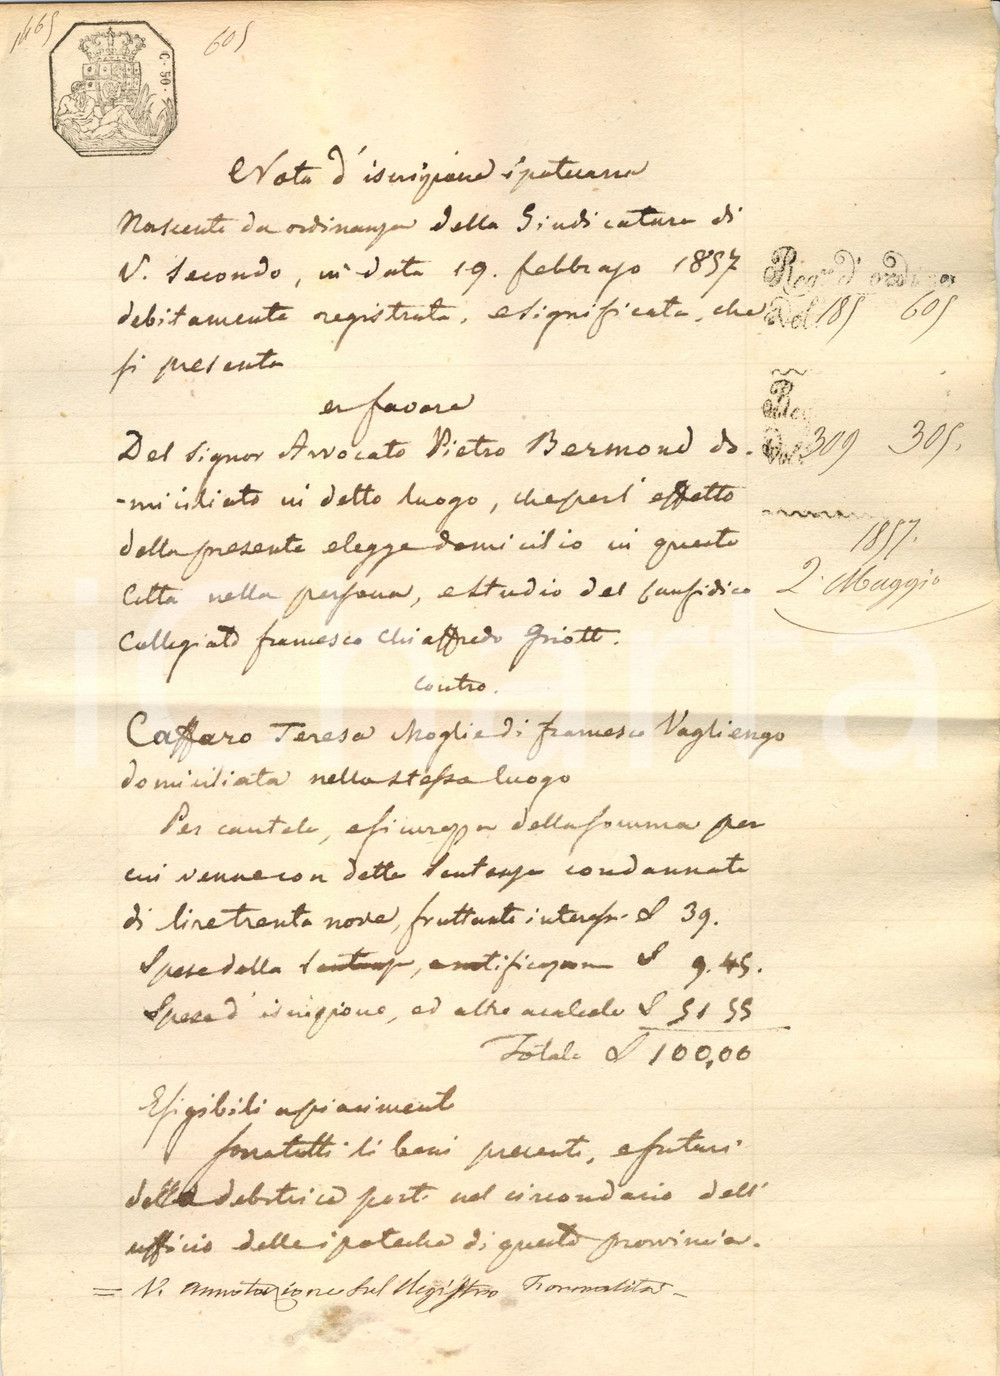 1465
605
C. 50.
Nota d'iscrizione ipotecaria
Nascente da ordinanza della Giudicatura di
V. Secondo, in data 19. febbrajo 1857
debitamente registrata, e significata, che
si presenta
in favore
Del Signor Avvocato Pietro Bermond do-
-miciliato in detto luogo, che per l'effetto
della presente elegge domicilio in questa
Città nella persona, e studio del Causidico
Collegiato francesco Chiaffredo Griott.
contro.
Caffaro Teresa Moglie di francesco Vagliengo
domiciliata nello stesso luogo
Per cautela, e sicurezza della somma per
cui venne con detta Sentenza condannata
di lire trenta nove, fruttante interessi £ 39.
Spese della Sentenza, e notificazione £ 9.45.
Spese d'iscrizione, ed altre accalcolo £ 51 55
Totale £ 100,00
Esigibili a piacimento
Sovra tutti li beni presenti, e futuri
della debitrice posti nel circondario dell'
ufficio delle ipoteche di questa provincia.
= V. annotazione sul Registro Formalità -
Reg.º d'ordine
Vol. 185 605
Reg.
Vol. 309 305.
1857.
2. Maggio